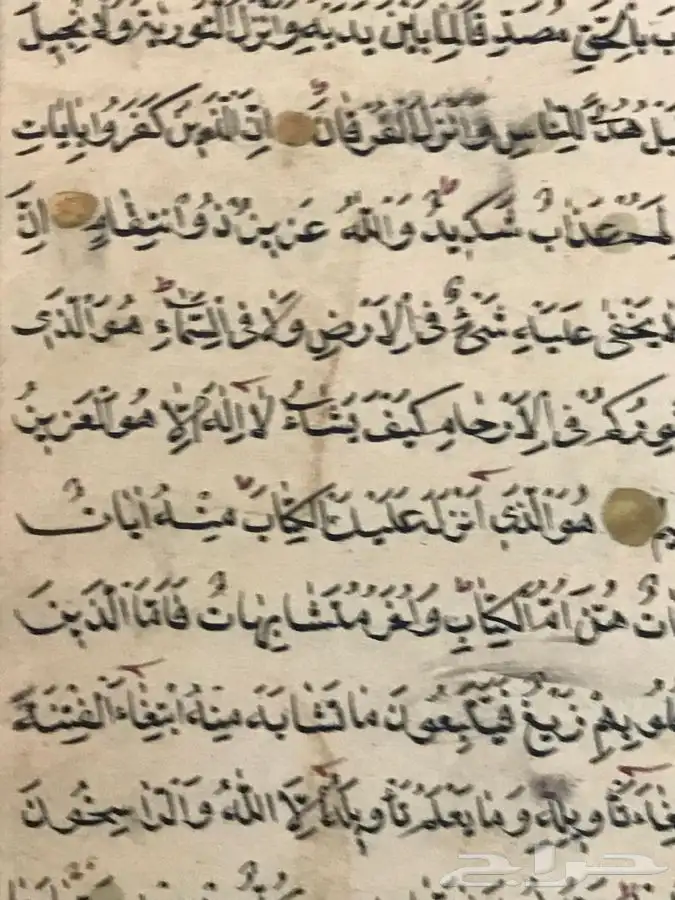 بَ بِالْحَقِّ مُصَدِّقًا لِمَا بَيْنَ يَدَيْهِ وَاَنْزَلَ التَّوْرٰيةَ وَالْاِنْجِيلَ
هُدًى لِلنَّاسِ وَاَنْزَلَ الْفُرْقَانَ اِنَّ الَّذِينَ كَفَرُوا بِاٰيَاتِ
لَهُمْ عَذَابٌ شَدِيدٌ وَاللّٰهُ عَزِيزٌ ذُو انْتِقَامٍ اِنَّ
يَخْفٰى عَلَيْهِ شَيْءٌ فِى الْاَرْضِ وَلَا فِى السَّمَاءِ هُوَ الَّذِى
فِى الْاَرْحَامِ كَيْفَ يَشَاءُ لَا اِلٰهَ اِلَّا هُوَ الْعَزِيزُ
هُوَ الَّذِى اَنْزَلَ عَلَيْكَ الْكِتَابَ مِنْهُ اٰيَاتٌ
اتٌ هُنَّ اُمُّ الْكِتَابِ وَاُخَرُ مُتَشَابِهَاتٌ فَاَمَّا الَّذِينَ
لُوبِهِمْ زَيْغٌ فَيَتَّبِعُونَ مَا تَشَابَهَ مِنْهُ ابْتِغَاءَ الْفِتْنَةِ
غَاءَ تَأْوِيلِهِ وَمَا يَعْلَمُ تَأْوِيلَهُ اِلَّا اللّٰهُ وَالرَّاسِخُونَ
حراج